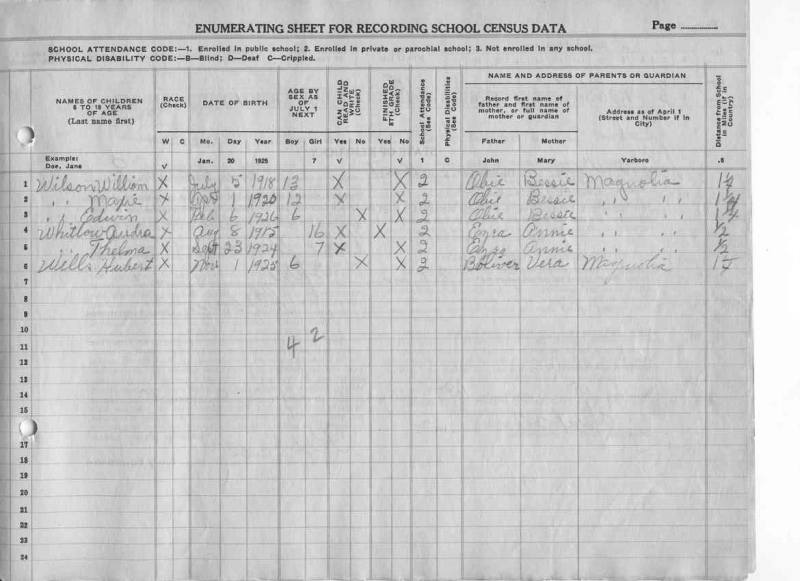 ENUMERATING SHEET FOR RECORDING SCHOOL CENSUS DATA Page
SCHOOL ATTENDANCE CODE:—1. Enrolled in public school; 2. Enrolled in private or parochial school; 3. Not enrolled in any school.
PHYSICAL DISABILITY CODE:—B—Blind; D—Deaf C—Crippled.
NAMES OF CHILDREN 5 TO 18 YEARS OF AGE (Last name first)
RACE (Check)
DATE OF BIRTH
AGE BY SEX AS OF JULY 1 NEXT
CAN CHILD READ AND WRITE (Check)
FINISHED 8TH GRADE (Check)
School Attendance (See Code)
Physical Disabilities (See Code)
NAME AND ADDRESS OF PARENTS OR GUARDIAN
Record first name of father and first name of mother, or full name of mother or guardian
Address as of April 1 (Street and Number if in City)
Distance from School in Miles (if in Country)
W C Mo. Day Year Boy Girl Yes No Yes No Father Mother
Example: Doe, Jane V Jan. 20 1925 7 V V 1 C John Mary Yarboro .5
1 Wilson William X July 5 1918 13 X X 2 Obie Bessie Magnolia
2 " Mazie X 1 1920 12 X X 2 Obie Bessie " "
3 " Edwin X Feb 6 1926 6 X X 2 Obie Bessie " "
4 Whitlow Audra X Aug 8 1915 16 X X 2 Ezra Annie " " 1/2
5 Thelma X Sept 23 1924 7 X X 2 Ezra Annie " " 1/2
6 Wells Hubert X Nov 1 1925 6 X X 2 Boliver Vera Magnolia
7
8
9
10
11 4 2
12
13
14
15
17
18
19
20
21
22
23
24